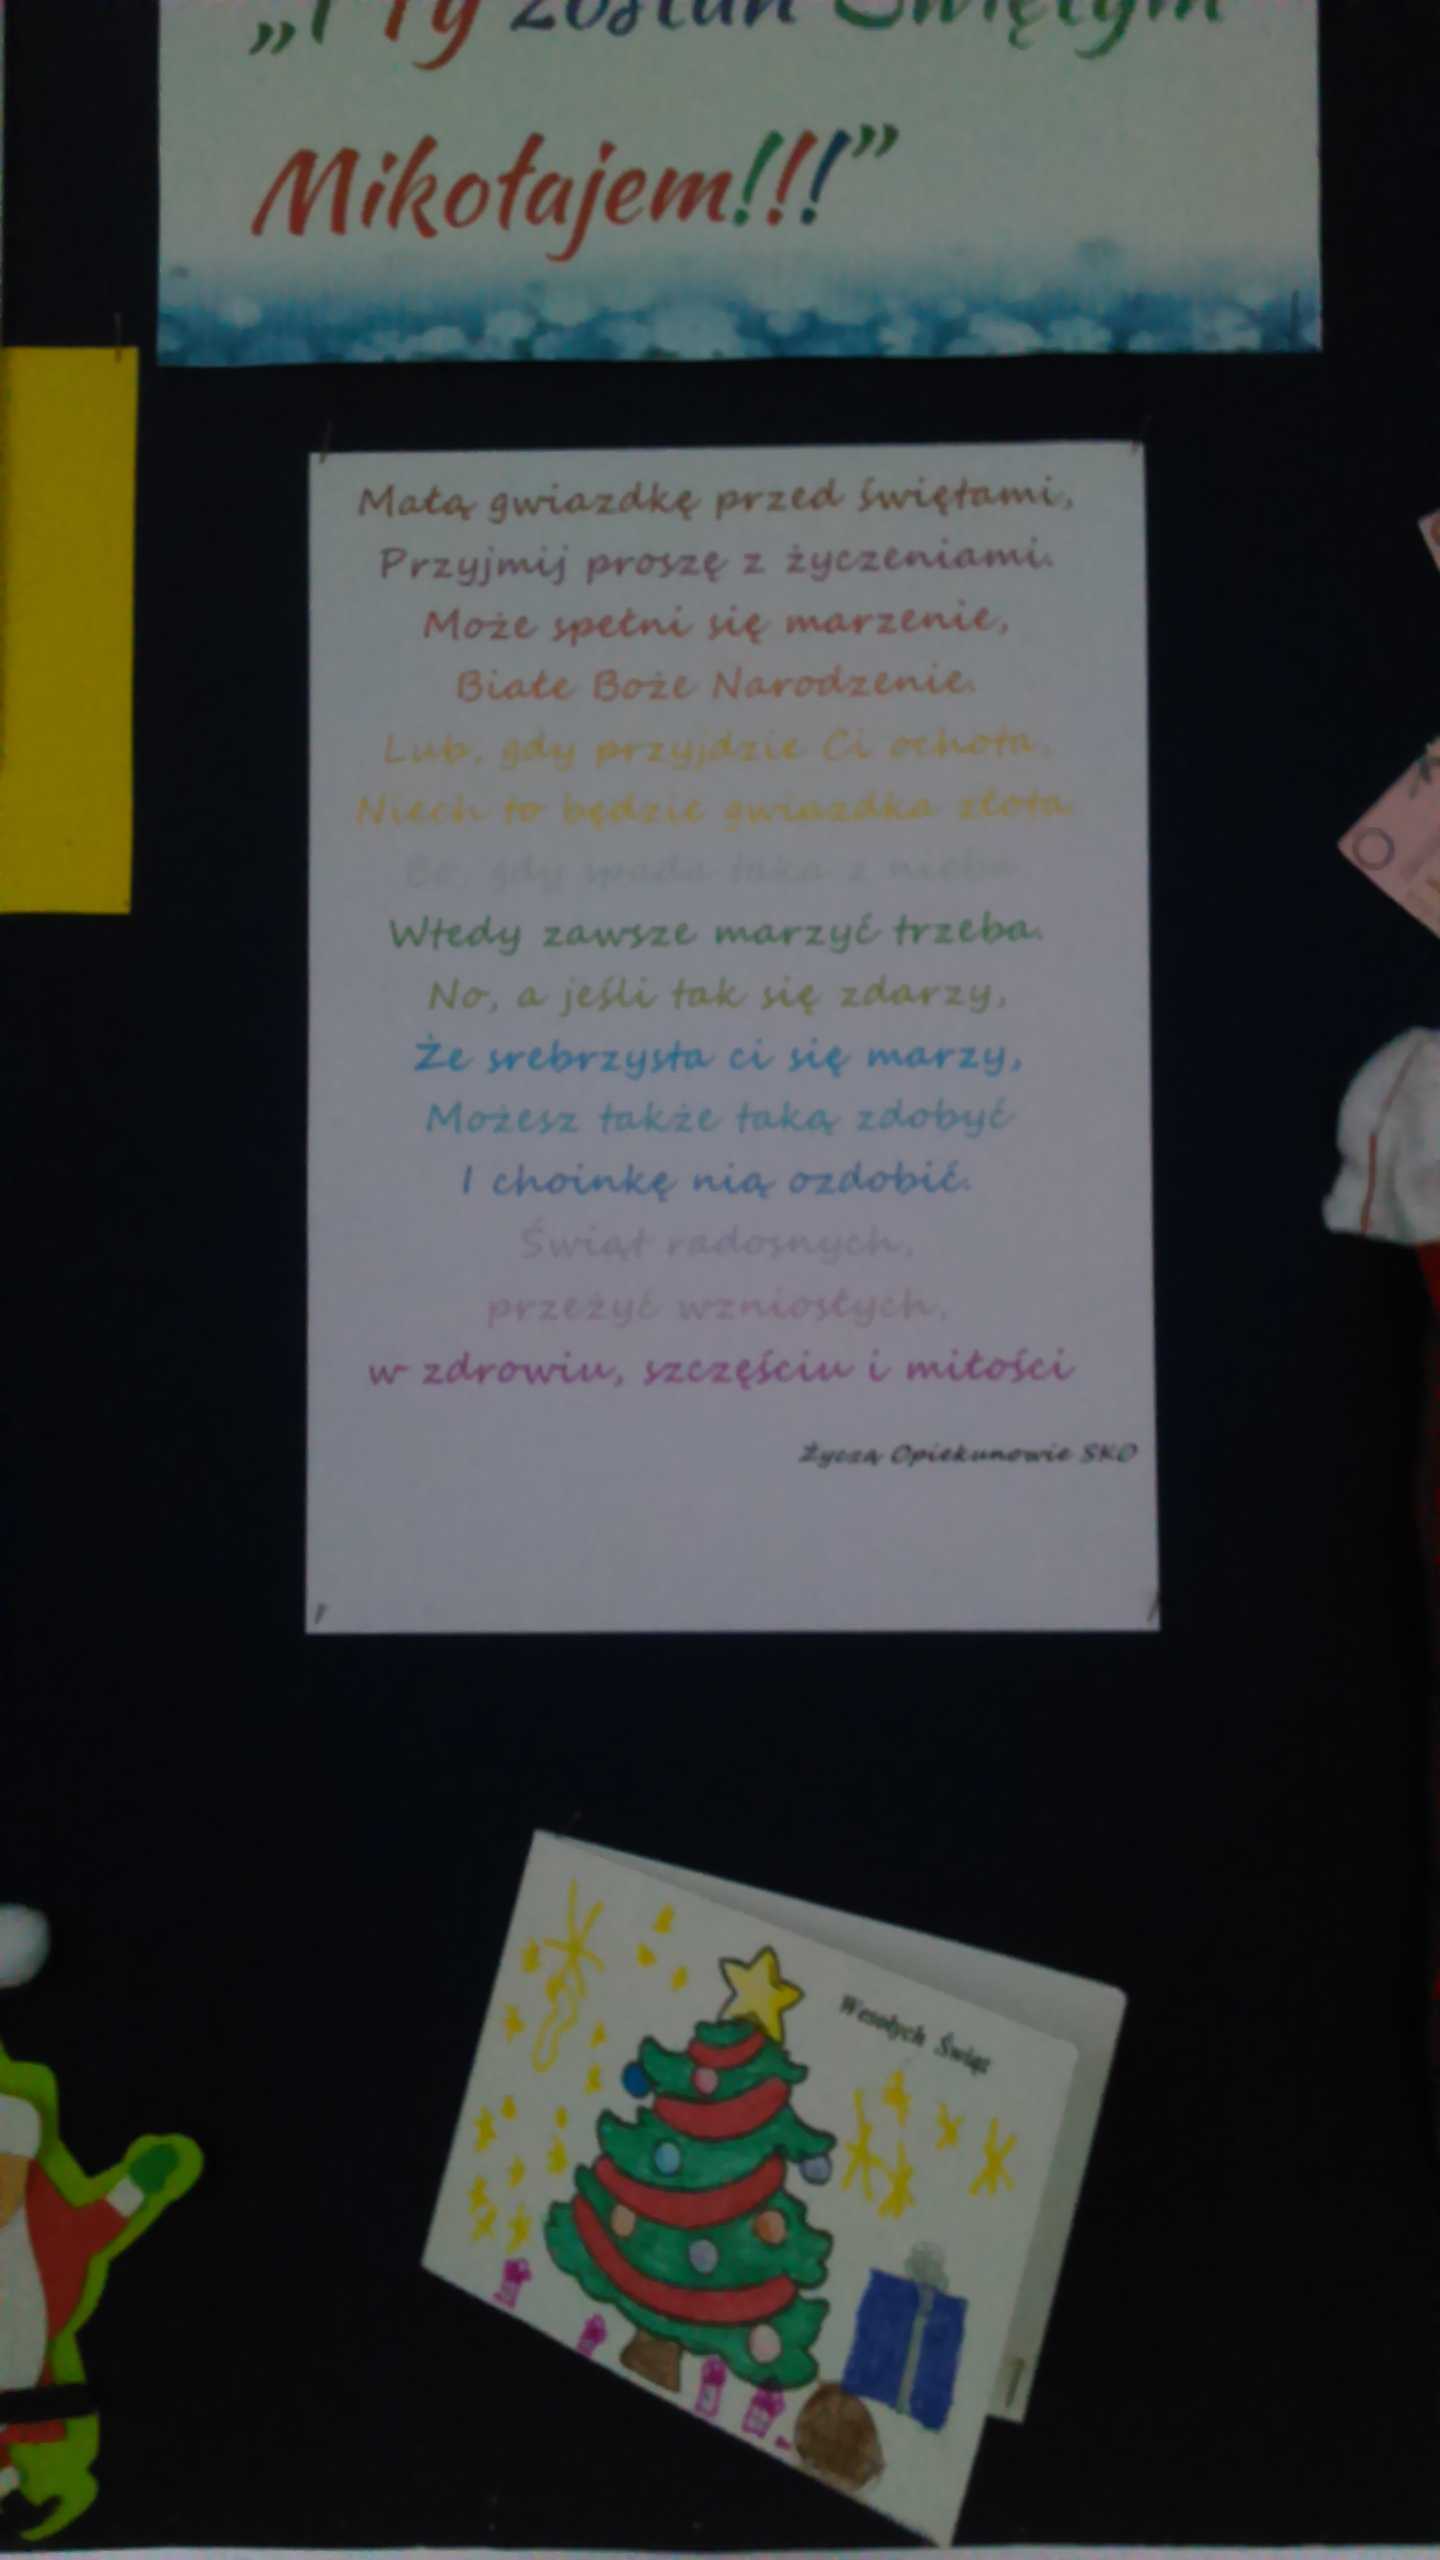 „I Ty zostań Świętym
Mikołajem!!!”
Małą gwiazdkę przed świętami,
Przyjmij proszę z życzeniami.
Może spełni się marzenie,
Białe Boże Narodzenie.
Lub, gdy przyjdzie Ci ochota,
Niech to będzie gwiazdka złota.
Bo, gdy spada taka z nieba
Wtedy zawsze marzyć trzeba.
No, a jeśli tak się zdarzy,
Że srebrzysta ci się marzy,
Możesz także taką zdobyć
I choinkę nią ozdobić.
Świąt radosnych,
przeżyć wzniosłych,
w zdrowiu, szczęściu i miłości
Życzą Opiekunowie SKO
Wesołych Świąt